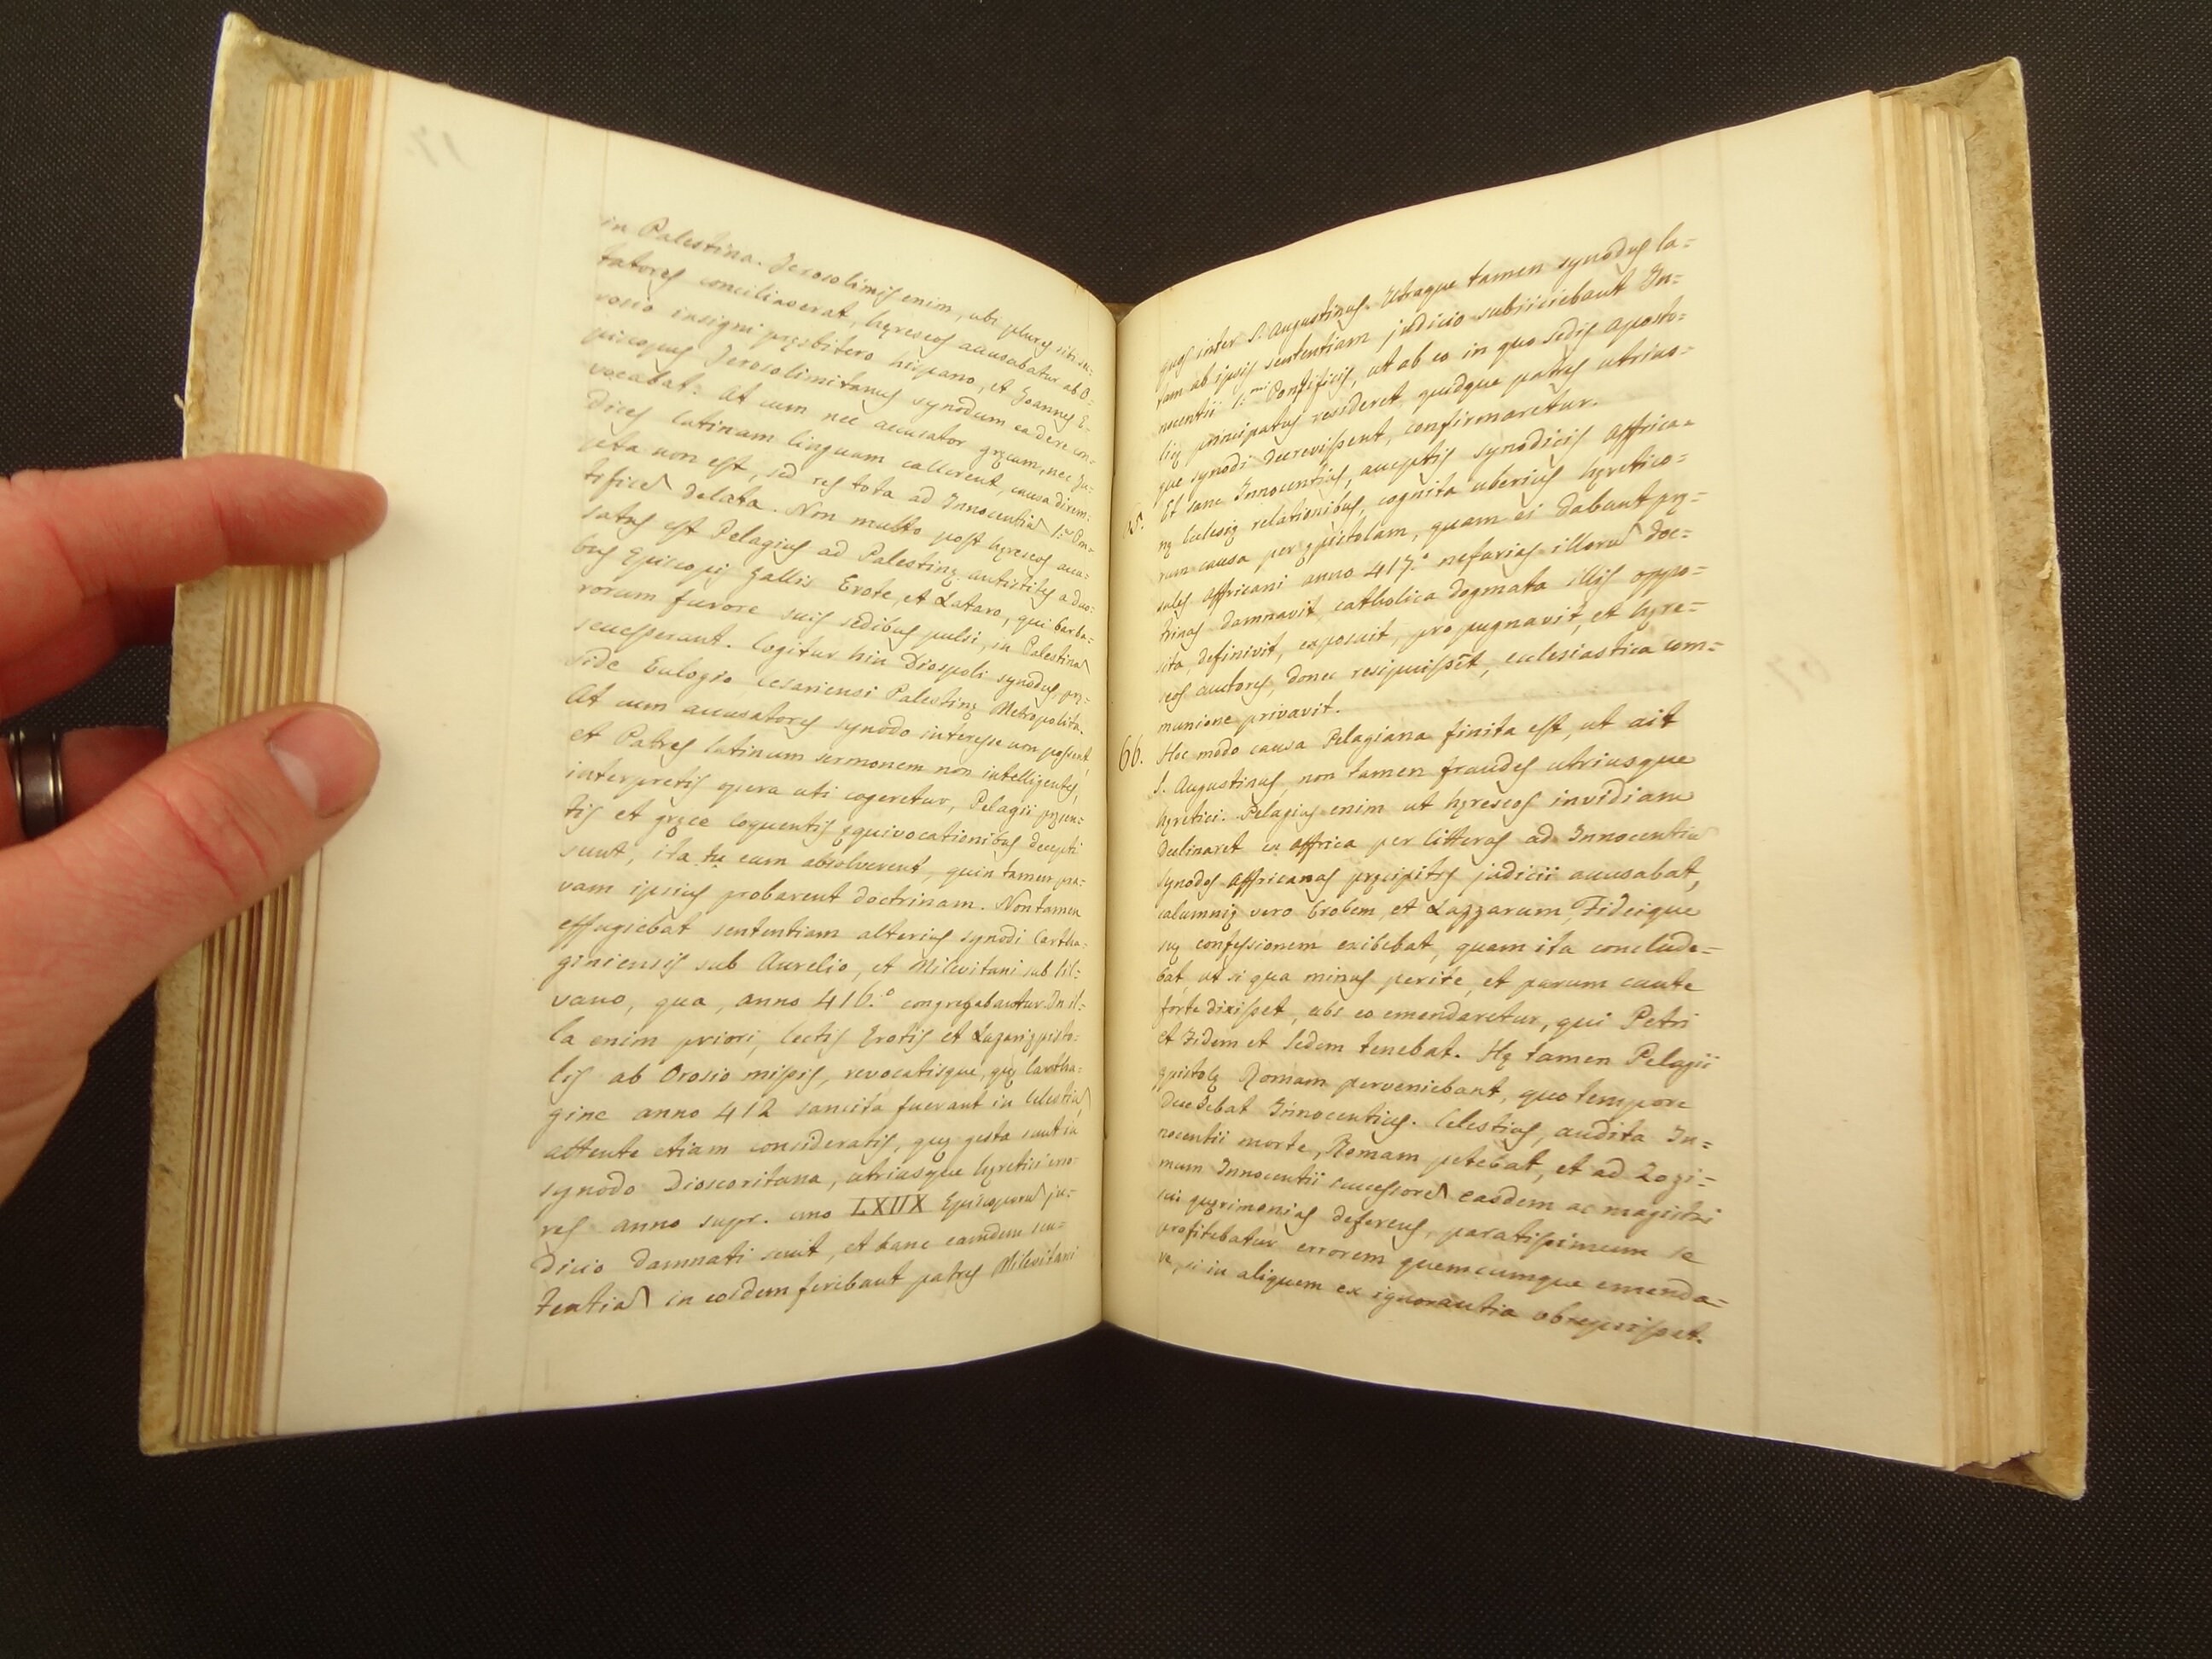 in Palestina. Jerosolimis enim, ubi plures sibi su-
tatores conciliaverat, hęreseos accusabatur ab O-
rosio insigni pręsbitero hispano, et Joannes E-
piscopus Jerosolimitanus synodum ea de re con-
vocabat: At cum nec accusator gręcam, nec Ju-
dices latinam linguam callerent, causa direm-
pta non est, sed res tota ad Innocentiũ 1.m Pon-
tificẽ delata. Non multo post hęreseos accu-
satus est Pelagius ad Palestinę antistites a duo-
bus Episcopis gallis Erote, et Lazaro, qui barba-
rorum furore suis sedibus pulsi, in Palestinã
secesserant. Cogitur hin Diospoli synodus, prę-
side Eulogio cesariensi Palestinę Metropolita.
At cum accusatores synodo interesse non possent,
et Patres latinum sermonem non intelligentes,
interpretis opera uti cogeretur, Pelagii pręsen-
tis et gręce loquentis ęquivocationibus decepti
sunt, ita tu eum absolverent, quin tamen pra-
vam ipsius probarent doctrinam. Non tamen
effugiebat sententiam alterius synodi Cartha-
giniensis sub Aurelio, et Milevitani sub Sil-
vano, qua, anno 416.o congregabantur. In il-
la enim priori, lectis Erotis et Lazari ępisto-
lis ab Orosio missis, revocatisque, quę Cartha-
gine anno 412 sancita fuerant in Celestiũ,
attente etiam consideratis, quę gesta sunt in
synodo Dioscoritana, utriusque hęretici erro-
res anno supr. uno LXIIX Episcoporũ ju-
dicio damnati sunt, et hanc eamdem sen-
tentiã in eosdem feribant patres Milevitani
quos inter S. Augustinus. Utraque tamen synodus la-
tam ab ipsis sententiam judicio subiiciebant In-
nocentii 1.mi Pontificis, ut ab eo in quo sedis Aposto-
licę principatus resideret, quidque patres utrius-
que synodi decrevissent, confirmaretur.
65. Et sane Innocentius, acceptis synodicis Affrica-
nę Ecclesię relationibus, cognita uberius hęretico-
rum causa per ępistolam, quam ei dabant prę-
sules Affricani anno 417.o nefarias illorũ doc-
trinas damnavit, catholica dogmata illis oppo-
sita, definivit, exposuit, propugnavit, et hęre-
seos autores, donec resipuissẽt, ecclesiastica com-
munione privavit.
66. Hoc modo causa Pelagiana finita est, ut ait
S. Augustinus, non tamen fraudes utriusque
hęretici. Pelagius enim ut hęreseos invidiam
declinaret ex Affrica per litteras ad Innocentiũ
synodos Affricanas pręcipitis judicii accusabat,
calumnię vero Erotem, et Lazzarum, Fideique
suę confessionem exibebat, quam ita conclude-
bat, ut si qua minus perite, et parum caute
forte dixisset, abs eo emendaretur, qui Petri
et Fidem et Sedem tenebat. Hę tamen Pelagii
ępistolę Romam perveniebant, quo tempore
decedebat Innocentius. Celestius, audita In-
nocentii morte, Romam petebat, et ad Zozi-
mum Innocentii successorẽ easdem ac magistri
sui quęrimonias deferens, paratissimum se
profitebatur errorem quemcumque emenda-
re, si in aliquem ex ignorantia obrepsisset.